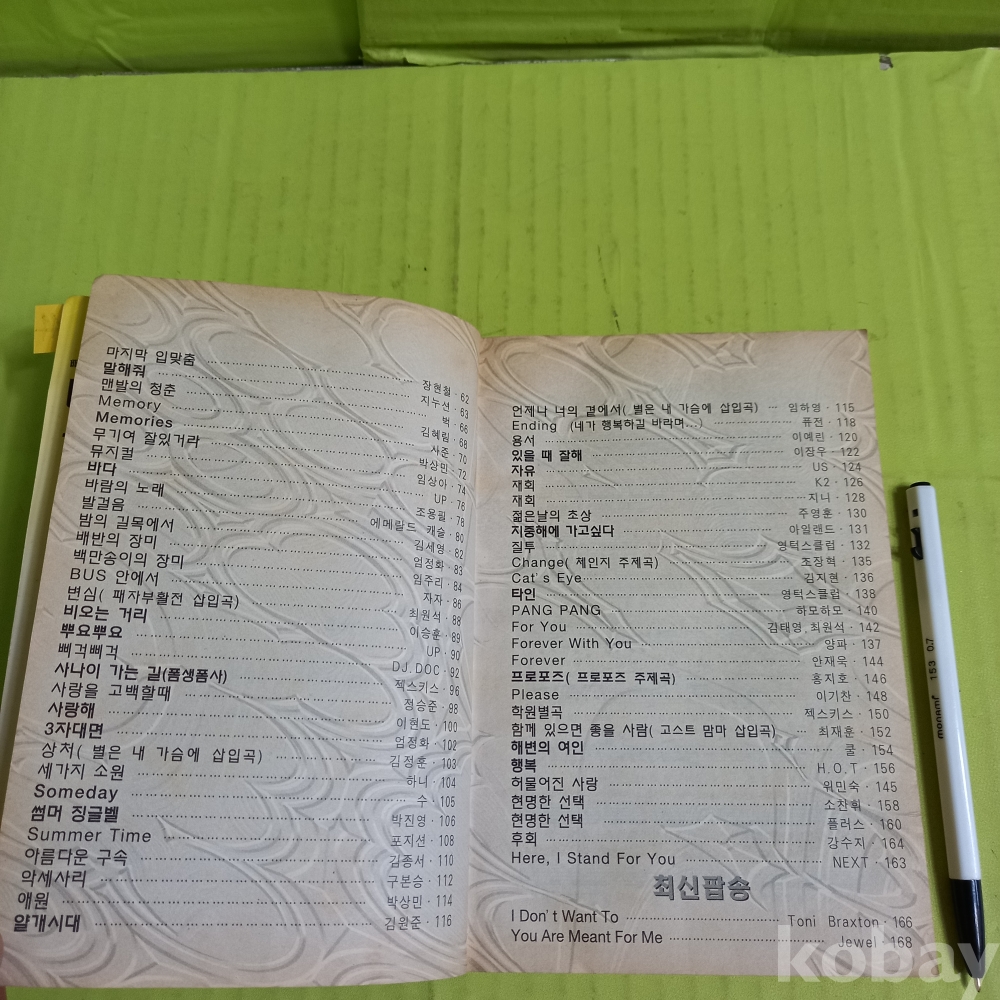 마지막 입맞춤 장현철 · 62
말해줘 지누션 · 63
맨발의 청춘 벅 · 66
Memory 김혜림 · 68
Memories 사준 · 70
무기여 잘있거라 박상민 · 72
뮤지컬 임상아 · 74
바다 UP · 76
바람의 노래 조용필 · 78
발걸음 에메랄드 캐슬 · 80
밤의 길목에서 김세영 · 82
배반의 장미 엄정화 · 83
백만송이의 장미 임주리 · 84
BUS 안에서 자자 · 86
변심( 패자부활전 삽입곡) 최원석 · 88
비오는 거리 이승훈 · 89
뿌요뿌요 UP · 90
삐걱빼걱 DJ. DOC · 92
사나이 가는 길(폼생폼사) 젝스키스 · 96
사랑을 고백할때 정승준 · 98
사랑해 이현도 · 100
3자대면 엄정화 · 102
상처( 별은 내 가슴에 삽입곡) 김정훈 · 103
세가지 소원 하니 · 104
Someday 수 · 105
썸머 징글벨 박진영 · 106
Summer Time 포지션 · 108
아름다운 구속 김종서 · 110
악세사리 구본승 · 112
애원 박상민 · 114
얄개시대 김완준 · 116
언제나 너의 곁에서( 별은 내 가슴에 삽입곡) 임하영 · 115
Ending (네가 행복하길 바라며...) 퓨전 · 118
용서 이예린 · 120
있을 때 잘해 이장우 · 122
자유 US · 124
재회 K2 · 126
재회 지니 · 128
젊은날의 초상 주영훈 · 130
지중해에 가고싶다 아일랜드 · 131
질투 영턱스클럽 · 132
Change( 체인지 주제곡) 조장혁 · 135
Cat's Eye 김지현 · 136
타인 영턱스클럽 · 138
PANG PANG 하모하모 · 140
For You 김태영,최원석 · 142
Forever With You 양파 · 137
Forever 안재욱 · 144
프로포즈( 프로포즈 주제곡) 홍지호 · 146
Please 이기찬 · 148
학원별곡 젝스키스 · 150
함께 있으면 좋을 사람( 고스트 맘마 삽입곡) 최재훈 · 152
해변의 여인 쿨 · 154
행복 H.O.T · 156
허물어진 사랑 위민숙 · 145
현명한 선택 소찬휘 · 158
현명한 선택 플러스 · 160
후회 강수지 · 164
Here, I Stand For You NEXT · 163
최신팝송
I Don't Want To Toni Braxton · 166
You Are Meant For Me Jewel · 168
monami 153 0.7
kobay